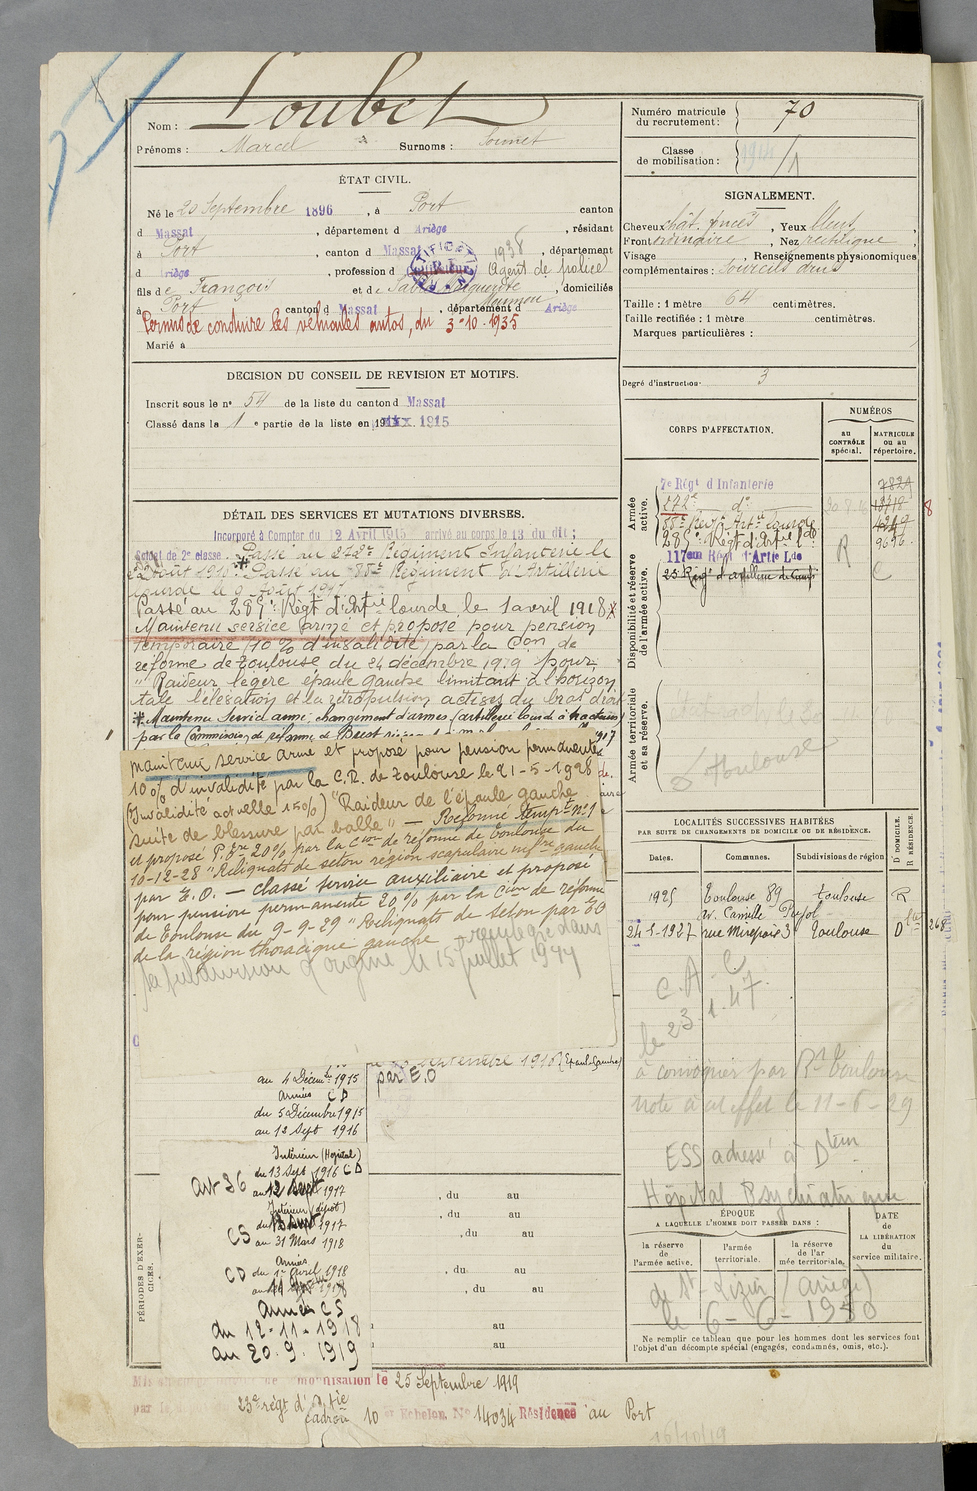 Nom : Loubet
Prénoms : Marcel Surnoms :
ÉTAT CIVIL.
Né le 20 Septembre 1896, à Port canton
d Massat, département d Ariège, résidant
à Port, canton d Massat 1938, département
d Ariège, profession d Agent de police
fils de François et de, domiciliés
à Port canton d Massat, département d Ariège
Permis de conduire les véhicules autos, du 3-10-1935
Marié à
DECISION DU CONSEIL DE REVISION ET MOTIFS.
Inscrit sous le n° 54 de la liste du canton d Massat
Classé dans la 1 e partie de la liste en 1915
DÉTAIL DES SERVICES ET MUTATIONS DIVERSES.
Incorporé à Compter du 12 Avril 1915 arrivé au corps le 13 du dit ;
Soldat de 2e classe. Passé au 272e Régiment Infanterie le
Passé au 88e Régiment d'Artillerie
lourde le
Passé au 289e Régt d'Artie lourde le 1 avril 1918
Maintenu service armé et proposé pour pension
temporaire (10 % d'invalidité) par la Con de
réforme de Toulouse du 24 décembre 1919 pour
"Raideur légère épaule gauche limitant à l'horizon
tale l'élévation et la rétropulsion actives du bras droit
* Maintenu Servic armé, changement d'armes (artillerie lourde à tracteurs)
par la Commission de réforme de Brest
maintenu service armé et proposé pour pension permanente
10 % d'invalidité par la C.R. de Toulouse le 21-5-1928
(Invalidité actuelle 15%) "Raideur de l'épaule gauche
suite de blessure par balle" — Réformé Tempre n° 1
et proposé P. Tre 20% par la Cion de réforme de Toulouse du
10-12-28 "Reliquats de séton région scapulaire infre gauche
par E.O. — classé service auxiliaire et proposé
pour pension permanente 20 % par la Cion de réforme
de Toulouse du 9-9-29 "Reliquats de séton par EO
de la région thoracique gauche
replacé dans
sa subdivision d'origine le 15 juillet 1944
septembre 1916 (Epaule gauche)
par E.O
au 4 Décembre 1915
Armées CD
du 5 Décembre 1915
au 12 Sept 1916
Intérieur (Hôpital)
du 13 Sept 1916 CD
art 36 au 1917
Intérieur (dépôt)
CS du 1917
au 31 Mars 1918
Armées
CD du 1er avril 1918
au 1918
Armées CS
du 12-11-1918
au 20.9.1919
PÉRIODES D'EXERCICES.
, du au
, du au
, du au
, du au
, du au
au
au
démobilisation le 25 Septembre 1919
23e régt d'Artie
10 e Echelon. N° 14034 Résidence au Port
16/10/19
Numéro matricule
du recrutement : 70
Classe
de mobilisation :
SIGNALEMENT.
Cheveux chât. foncés, Yeux bleus,
Front ordinaire, Nez rectiligne,
Visage, Renseignements physionomiques
complémentaires : sourcils drus
Taille : 1 mètre 64 centimètres.
Taille rectifiée : 1 mètre centimètres.
Marques particulières :
Degré d'instruction : 3
CORPS D'AFFECTATION.
NUMÉROS
au CONTRÔLE spécial.
MATRICULE ou au répertoire.
Armée active.
7e Régt d Infanterie
272e do
88e Régt Artie lourde
289e Régt d'Artie Lde 9656
117em Régt d'Artie Lde R
Disponibilité et réserve de l'armée active.
Armée territoriale et sa réserve.
Toulouse
LOCALITÉS SUCCESSIVES HABITÉES
PAR SUITE DE CHANGEMENTS DE DOMICILE OU DE RÉSIDENCE.
Dates. Communes. Subdivisions de région.
D DOMICILE. R RÉSIDENCE.
1925 Toulouse 89 Toulouse R
av. Camille Pujol
24-1-1927 rue Mirepoix 3 Toulouse D
C.A.C
le 23.1.47.
à convoquer par Rt Toulouse
note à cet effet le 11-6-29
ESS adressé à Dteur
Hôpital Psychiatrique
ÉPOQUE
A LAQUELLE L'HOMME DOIT PASSER DANS :
la réserve de l'armée active.
l'armée territoriale.
la réserve de l'armée territoriale.
DATE de LA LIBÉRATION du service militaire.
de St-Lizier (Ariège)
le 6-6-1950
Ne remplir ce tableau que pour les hommes dont les services font
l'objet d'un décompte spécial (engagés, condamnés, omis, etc.).